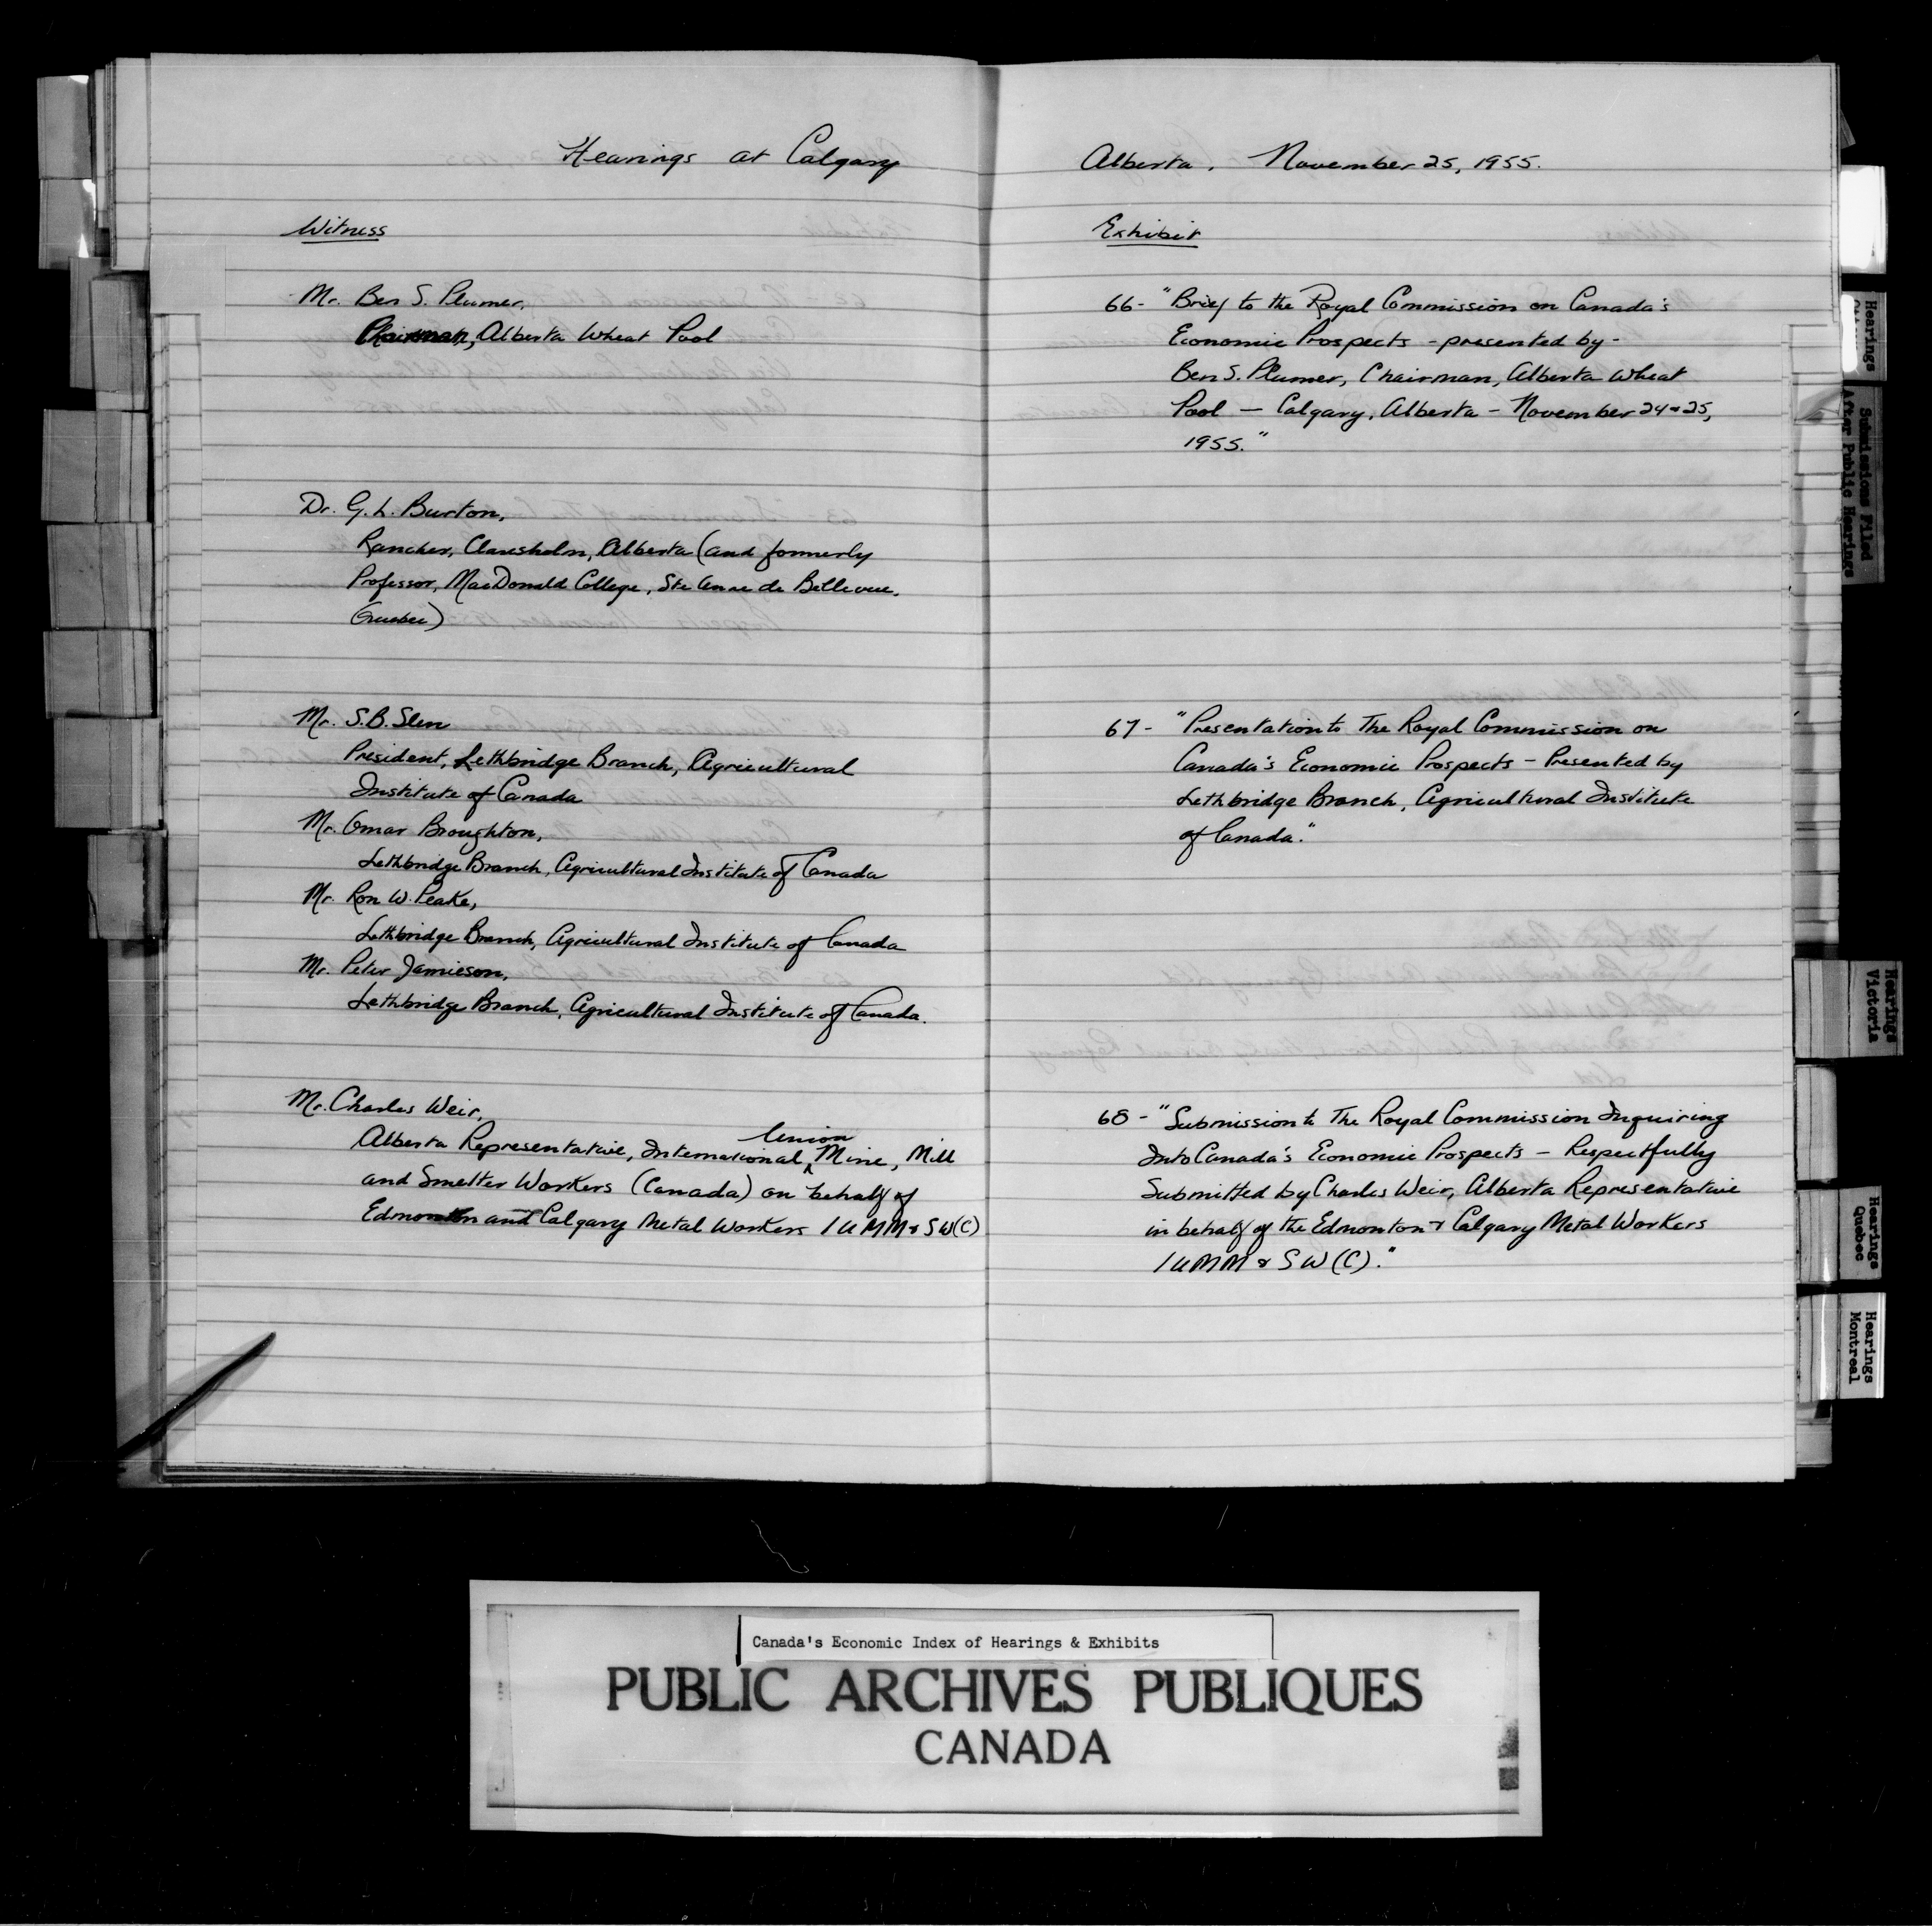 Hearings at Calgary
Witness
Mr. Ben S. Plumer,
Chairman, Alberta Wheat Pool
Dr. G. L. Burton,
Rancher, Claresholm, Alberta (and formerly
Professor, MacDonald College, Ste Anne de Bellevue,
Quebec)
Mr. S.B. Slen
President, Lethbridge Branch, Agricultural
Institute of Canada
Mr. Omar Broughton,
Lethbridge Branch, Agricultural Institute of Canada
Mr. Ron W. Peake,
Lethbridge Branch, Agricultural Institute of Canada
Mr. Peter Jamieson,
Lethbridge Branch, Agricultural Institute of Canada.
Mr. Charles Weir,
Alberta Representative, International Union Mine, Mill
and Smelter Workers (Canada) on behalf of
Edmonton and Calgary Metal Workers IUMM & SW(C)
Alberta, November 25, 1955.
Exhibit
66- "Brief to the Royal Commission on Canada's
Economic Prospects - presented by -
Ben S. Plumer, Chairman, Alberta Wheat
Pool — Calgary, Alberta - November 24 & 25,
1955."
67- "Presentation to The Royal Commission on
Canada's Economic Prospects - Presented by
Lethbridge Branch, Agricultural Institute
of Canada."
68- "Submission to The Royal Commission Inquiring
Into Canada's Economic Prospects - Respectfully
Submitted by Charles Weir, Alberta Representative
in behalf of the Edmonton & Calgary Metal Workers
IUMM & SW (C)."
Hearings
Submissions Filed
After Public Hearings
Hearings
Victoria
Hearings
Quebec
Hearings
Montreal
Canada's Economic Index of Hearings & Exhibits
PUBLIC ARCHIVES PUBLIQUES
CANADA